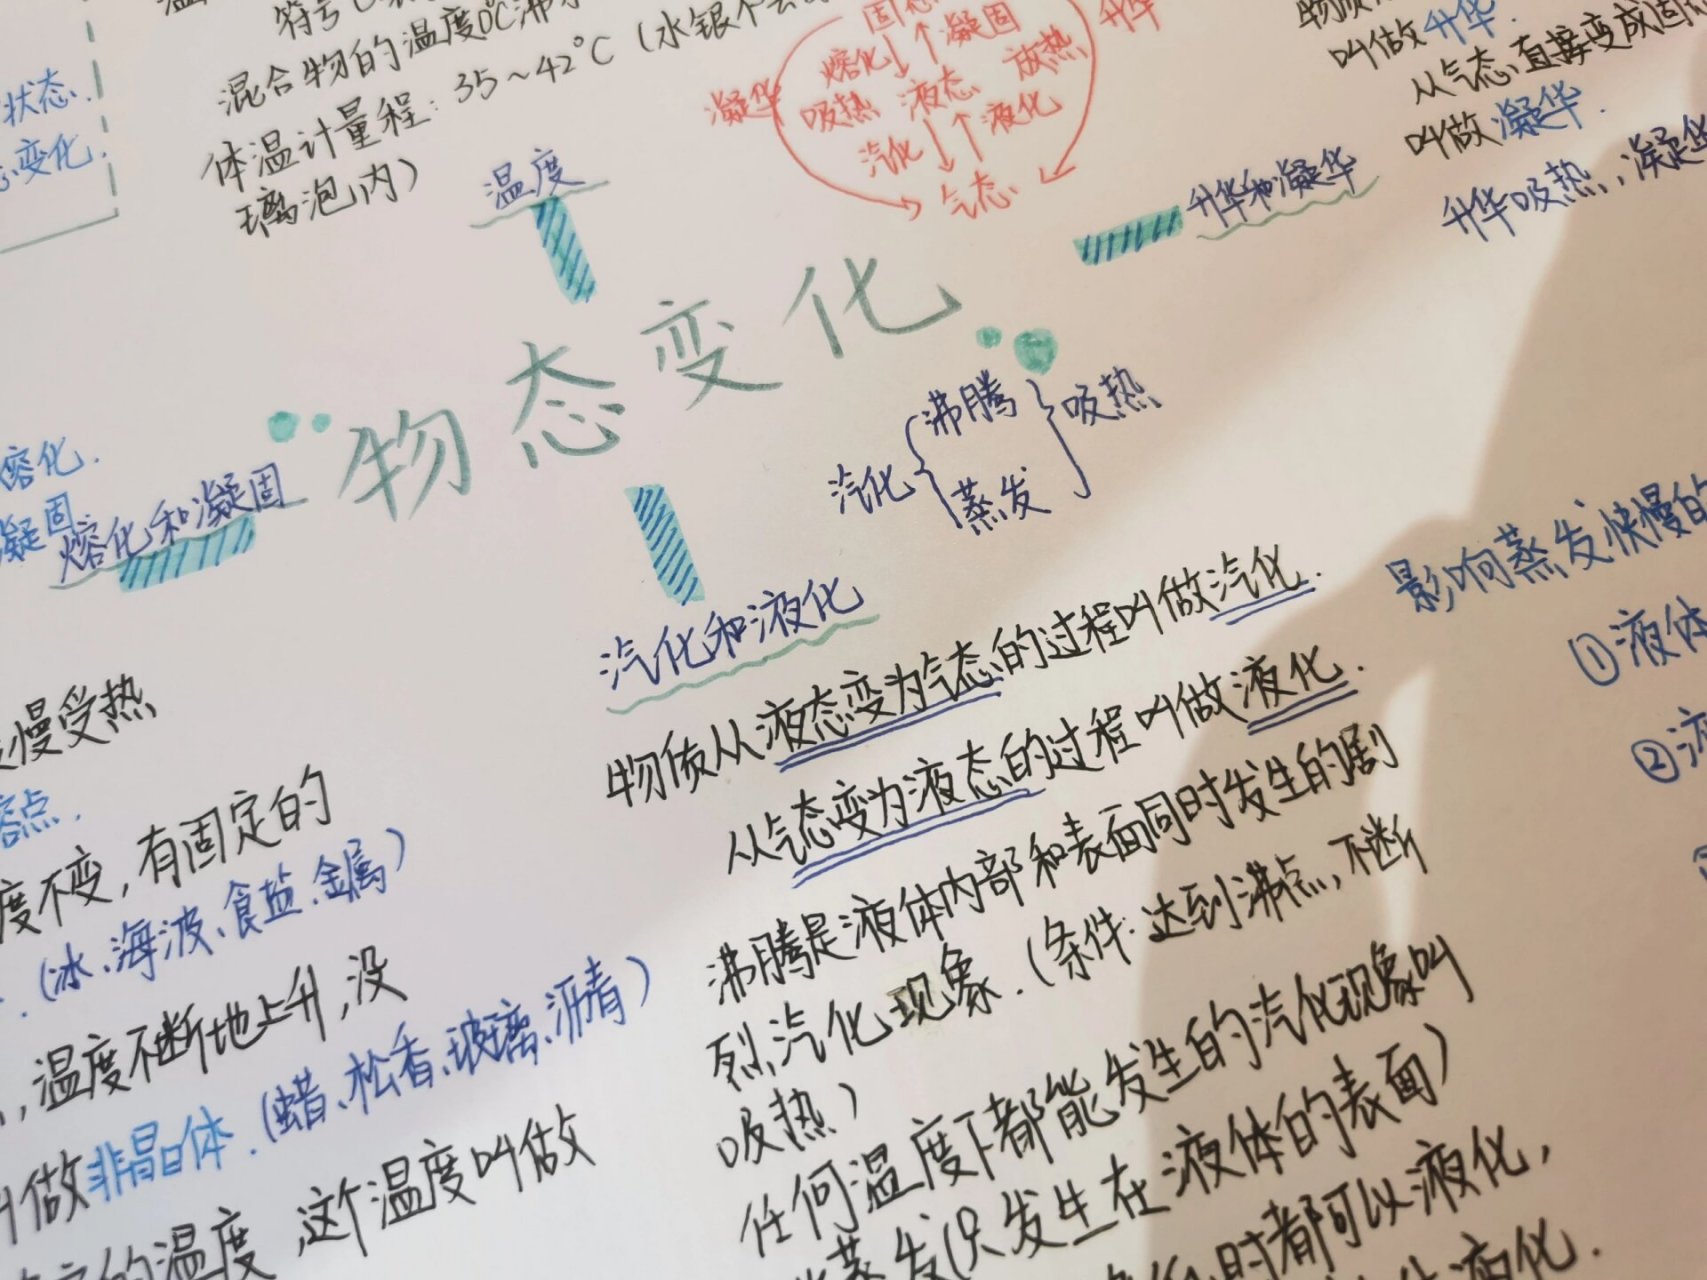 状态.
变化.
混合物的温度0℃沸
体温计量程:35~42℃(水银
璃泡内)
温度
凝固
熔化
放热
吸热
液态
液化
汽化
气态
凝华
升华
叫做升华.
从气态直接变成固
叫做凝华.
升华吸热,凝华
升华和凝华
物态变化
熔化.
凝固
熔化和凝固
汽化
沸腾
蒸发
吸热
汽化和液化
物质从液态变为气态的过程叫做汽化.
从气态变为液态的过程叫做液化.
沸腾是液体内部和表面同时发生的剧
烈汽化现象.(条件:达到沸点,不断
吸热)
任何温度下都能发生的汽化现象叫
蒸发(只发生在液体的表面)
时都可以液化,
液化.
影响蒸发快慢的
①液体
②液
慢受热
熔点.
度不变,有固定的
(冰、海波、食盐、金属)
,温度不断地上升,没
叫做非晶体.(蜡、松香、玻璃、沥青)
的温度,这个温度叫做